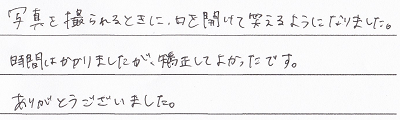 写真を撮られるときに、口を開けて笑えるようになりました。
時間はかかりましたが、矯正してよかったです。
ありがとうございました。